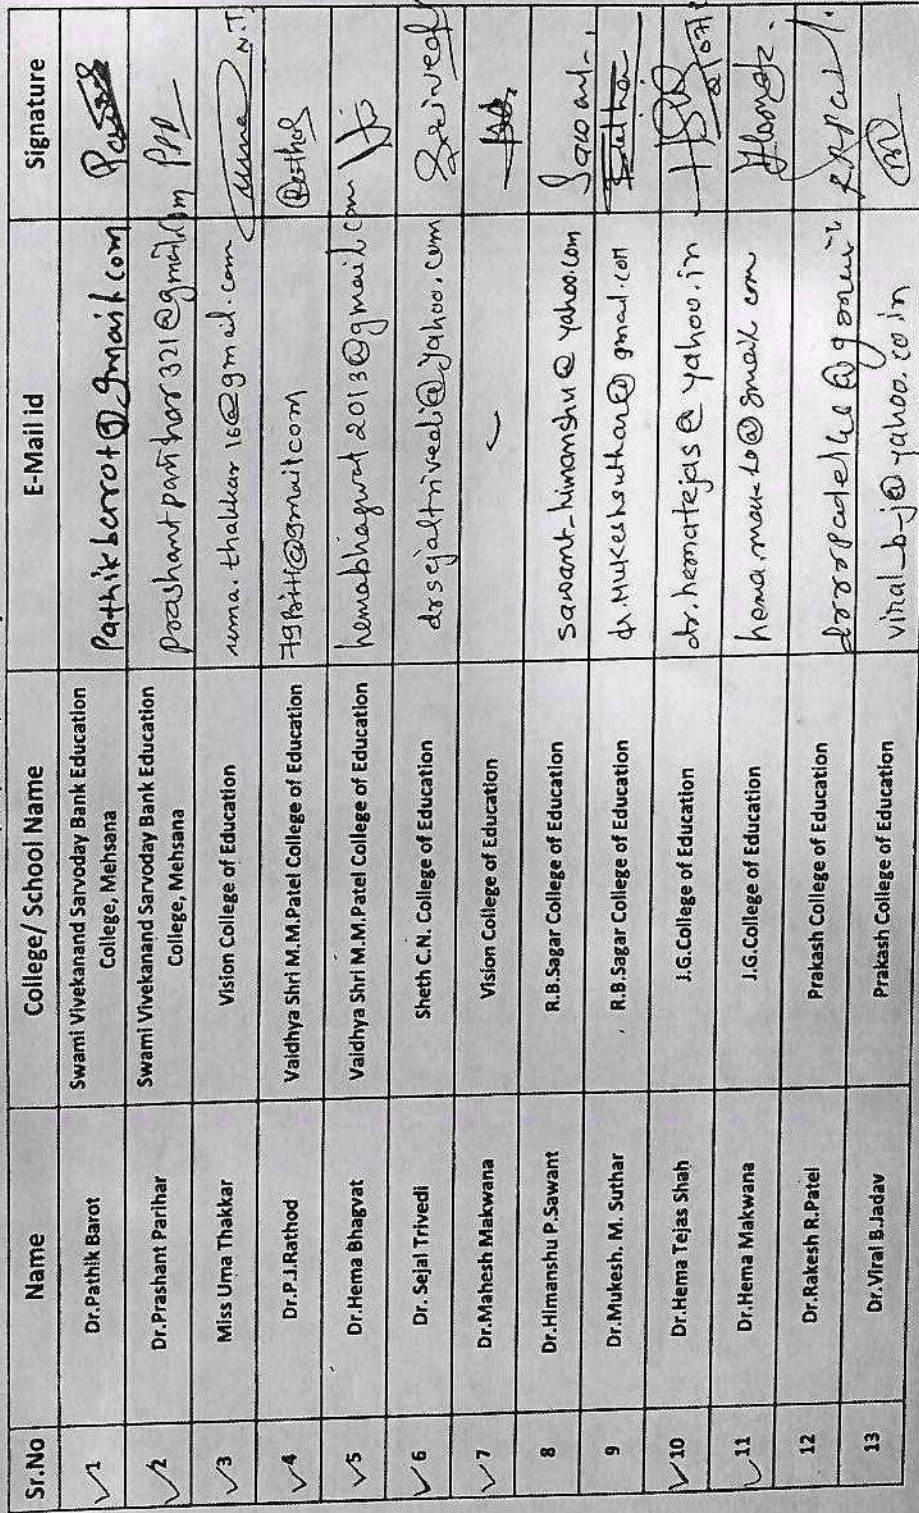 Sr.No Name College/ School Name E-Mail id Signature
1 Dr.Pathik Barot Swami Vivekanand Sarvoday Bank Education College, Mehsana Pathikbarot@gmail.com
2 Dr.Prashant Parihar Swami Vivekanand Sarvoday Bank Education College, Mehsana PPP
3 Miss Uma Thakkar Vision College of Education uma.thakkar16@gmail.com
4 Dr.P.J.Rathod Vaidhya Shri M.M.Patel College of Education
5 Dr.Hema Bhagvat Vaidhya Shri M.M.Patel College of Education hemabhagvat2013@gmail.com
6 Dr. Sejal Trivedi Sheth C.N. College of Education drsejaltrivedi@yahoo.com
7 Dr.Mahesh Makwana Vision College of Education
8 Dr.Himanshu P.Sawant R.B.Sagar College of Education sawant_himanshu@yahoo.com
9 Dr.Mukesh. M. Suthar R.B.Sagar College of Education dr.Mukeshsuthar@gmail.com
10 Dr.Hema Tejas Shah J.G.College of Education dr.hematejas@yahoo.in
11 Dr.Hema Makwana J.G.College of Education
12 Dr.Rakesh R.Patel Prakash College of Education
13 Dr.Viral B.Jadav Prakash College of Education viral_b_j@yahoo.co.in